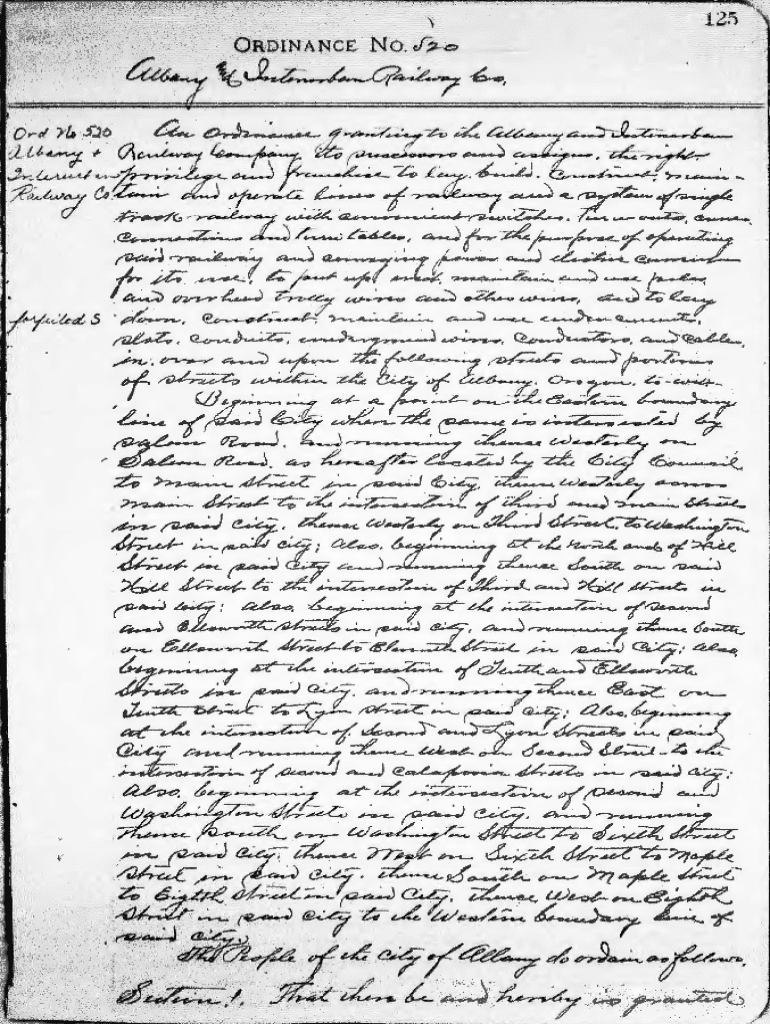 125
ORDINANCE NO. 520
Albany & Interurban Railway Co.
Ord No 520
Albany +
Interurban
Railway Co.
forfeited S
An Ordinance granting to the Albany and Interurban
Railway Company, its successors and assigns, the right,
privilege and franchise to lay, build, construct, main-
tain and operate lines of railway and a system of single
track railway with convenient switches, turnouts, curves,
connections and turntables, and for the purpose of operating
said railway and conveying power and electric current
for its use, to put up, erect, maintain and use poles
and overhead trolly wires and other wires, and to lay
down, construct, maintain and use
slots, conduits, underground wires, conductors, and cables,
in, over and upon the following streets and portions
of streets within the City of Albany, Oregon, to-wit:-
Beginning at a point on the Eastern boundary
line of said City where the same is intersected by
Salem Road, and running thence Westerly on
Salem Road, as hereafter located by the City Council
to Main Street in said City, thence Westerly across
Main Street to the intersection of Third and Main Streets
in said City, thence Westerly on Third Street, to Washington
Street in said city; Also, beginning at the North end of Hill
Street in said City and running thence South on said
Hill Street to the intersection of Third and Hill streets in
said city; also, beginning at the intersection of Second
and Ellsworth streets in said city, and running thence South
on Ellsworth Street to Eleventh Street in said City; Also,
beginning at the intersection of Tenth and Ellsworth
Streets in said City, and running thence East on
Tenth Street to Lyon street in said city; Also, beginning
at the intersection of Second and Lyon Streets in said
City and running thence West on Second Street to the
intersection of Second and Calapooia Streets in said city;
Also, beginning at the intersection of Second and
Washington Streets in said City, and running
thence South on Washington Street to Sixth Street
in said City, thence West on Sixth Street to Maple
Street in said City, thence South on Maple Street
to Eighth Street in said City, thence West on Eighth
Street in said City to the Western boundary line of
said city.
The People of the City of Albany do ordain as follows.
Section 1. That there be and hereby is granted